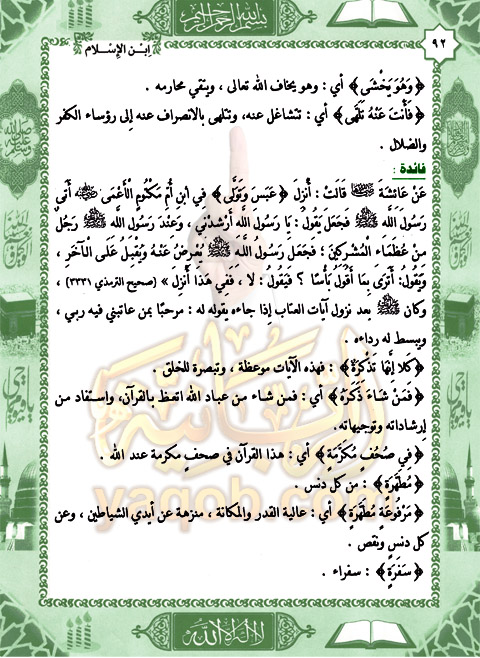 بسم الله الرحمن الرحيم
٩٢
ابن الإسلام
﴿وَهُوَ يَخْشَى﴾ أي : وهو يخاف الله تعالى ، ويتقي محارمه .
﴿فَأَنْتَ عَنْهُ تَلَهَّى﴾ أي : تتشاغل عنه، وتتلهى بالانصراف عنه إلى رؤساء الكفر
والضلال .
فائدة :
عَنْ عَائِشَةَ ﵂ قَالَتْ : أُنْزِلَ ﴿عَبَسَ وَتَوَلَّى﴾ فِي ابْنِ أُمِّ مَكْتُومٍ الْأَعْمَى ﵁ أَتَى
رَسُولَ اللَّهِ ﷺ فَجَعَلَ يَقُولُ : يَا رَسُولَ اللَّهِ أَرْشِدْنِي ، وَعِنْدَ رَسُولِ اللَّهِ ﷺ رَجُلٌ
مِنْ عُظَمَاءِ الْمُشْرِكِينَ ؛ فَجَعَلَ رَسُولُ اللَّهِ ﷺ يُعْرِضُ عَنْهُ وَيُقْبِلُ عَلَى الْآخَرِ ،
وَيَقُولُ: أَتَرَى بِمَا أَقُولُ بَأْسًا ؟ فَيَقُولُ : لَا ، فَفِي هَذَا أُنْزِلَ » (صحيح الترمذي ٣٣٣١) ،
وكان ﷺ بعد نزول آيات العتاب إذا جاءه يقوله له : مرحبًا بمن عاتبني فيه ربي ،
ويبسط له رداءه .
﴿كَلَّا إِنَّهَا تَذْكِرَةٌ﴾ : فهذه الآيات موعظة ، وتبصرة للخلق .
﴿فَمَنْ شَاءَ ذَكَرَهُ﴾ أي : فمن شاء من عباد الله اتعظ بالقرآن، واستفاد من
إرشاداته وتوجيهاته.
﴿فِي صُحُفٍ مُكَرَّمَةٍ﴾ أي : هذا القرآن في صحفٍ مكرمة عند الله .
﴿مُطَهَّرَةٍ﴾ : من كل دنس .
﴿مَرْفُوعَةٍ مُطَهَّرَةٍ﴾ أي : عالية القدر والمكانة ، منزهة عن أيدي الشياطين ، وعن
كل دنسٍ ونقص .
﴿سَفَرَةٍ﴾ : سفراء .
yaqob.com
لا إله إلا الله